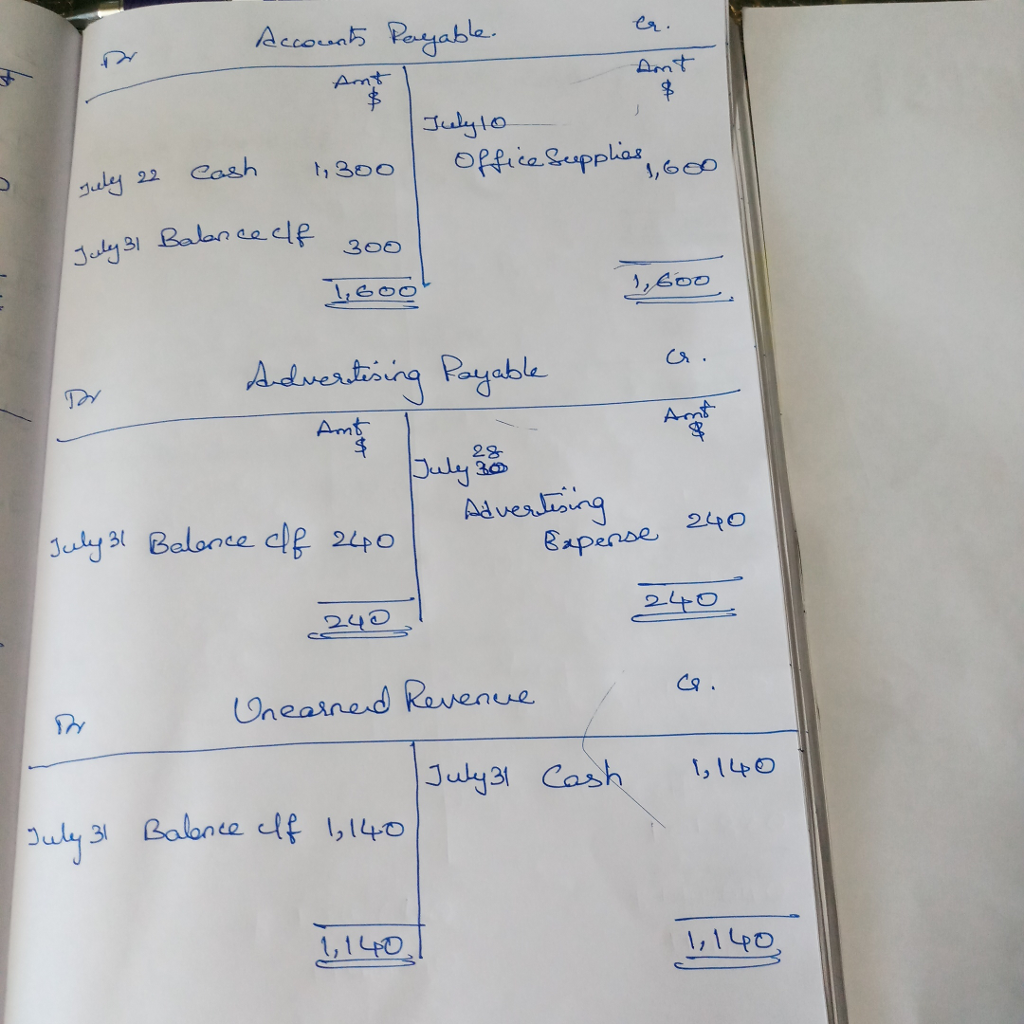 Dr Accounts Payable. Cr.
Amt Amt
$ $
July 10
July 22 Cash 1,300 Office Supplies 1,600
July 31 Balance c/f 300
1,600 1,600
Dr Advertising Payable Cr.
Amt Amt
$ $
28
July 30
Advertising
July 31 Balance c/f 240 Expense 240
240 240
Dr Unearned Revenue Cr.
July 31 Cash 1,140
July 31 Balance c/f 1,140
1,140 1,140